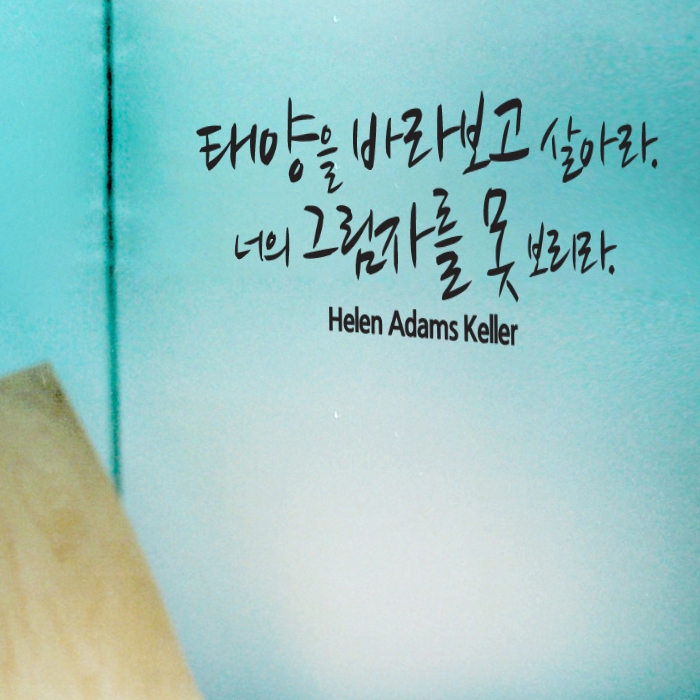 태양을 바라보고 살아라.
너의 그림자를 못 보리라.
Helen Adams Keller